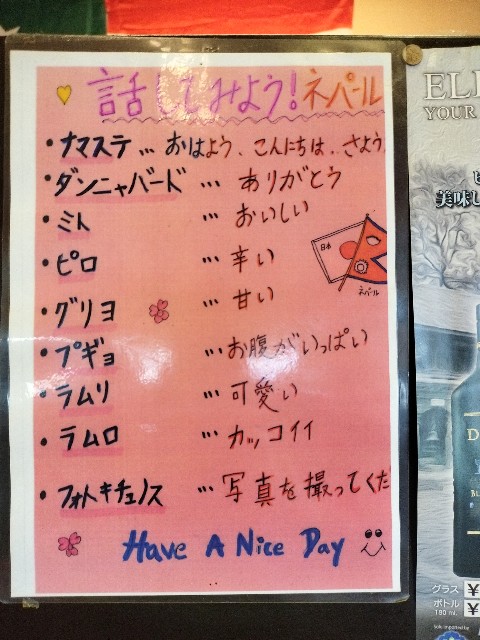 話してみよう！ネパール
・ナマステ … おはよう、こんにちは、さよう
・ダンニャバード … ありがとう
・ミト … おいしい
・ピロ … 辛い
・グリヨ … 甘い
・プギョ … お腹がいっぱい
・ラムリ … 可愛い
・ラムロ … カッコイイ
・フォトキチュノス … 写真を撮ってくだ
Have A Nice Day
日本
ネパール
YOUR
美味し
グラス ¥
ボトル ¥
190 ml.